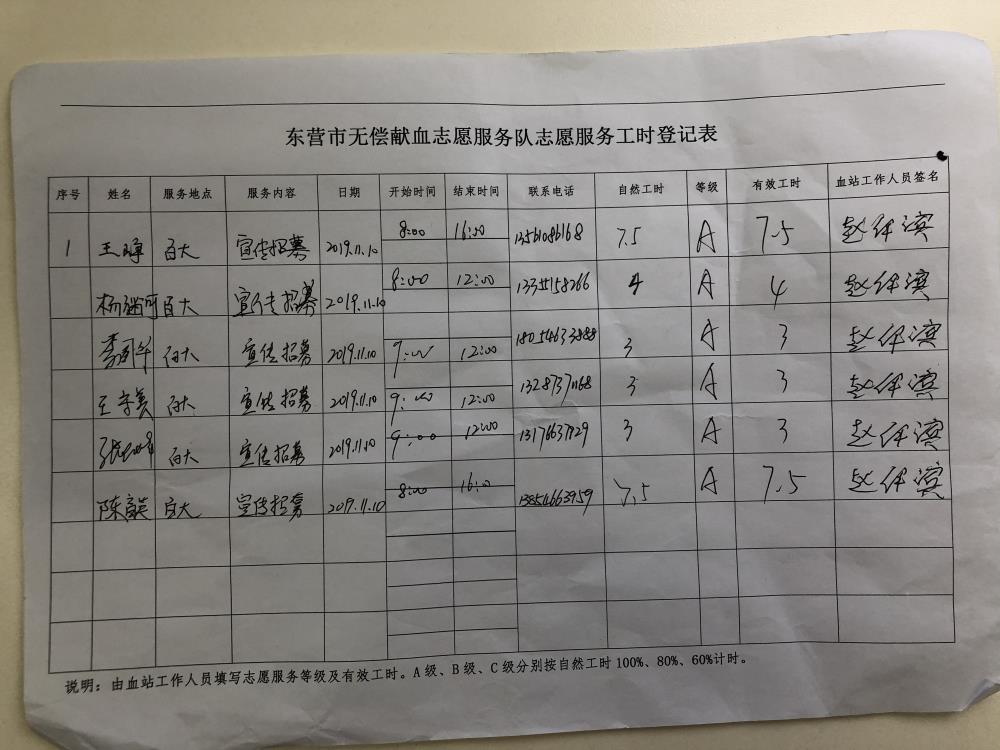 东营市无偿献血志愿服务队志愿服务工时登记表
序号 姓名 服务地点 服务内容 日期 开始时间 结束时间 联系电话 自然工时 等级 有效工时 血站工作人员签名
1 王 百大 宣传招募 2019.11.10 8:00 16:00 13561086168 7.5 A 7.5
杨 百大 宣传招募 2019.11.10 8:00 12:00 4 A 4
李 百大 宣传招募 2019.11.10 9:00 12:00 18054633888 3 A 3
王 百大 宣传招募 2019.11.10 9:00 12:00 13287371168 3 A 3
张 百大 宣传招募 2019.11.10 9:00 12:00 3 A 3
陈 百大 宣传招募 2019.11.10 8:00 16:0 13854663959 7.5 A 7.5
说明：由血站工作人员填写志愿服务等级及有效工时。A级、B级、C级分别按自然工时100%、80%、60%计时。